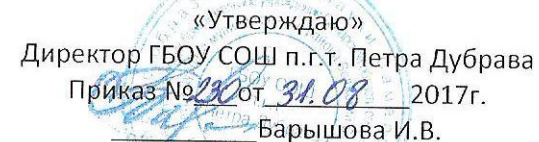 «Утверждаю»
Директор ГБОУ СОШ п.г.т. Петра Дубрава
Приказ №230от 31.08 2017г.
Барышова И.В.